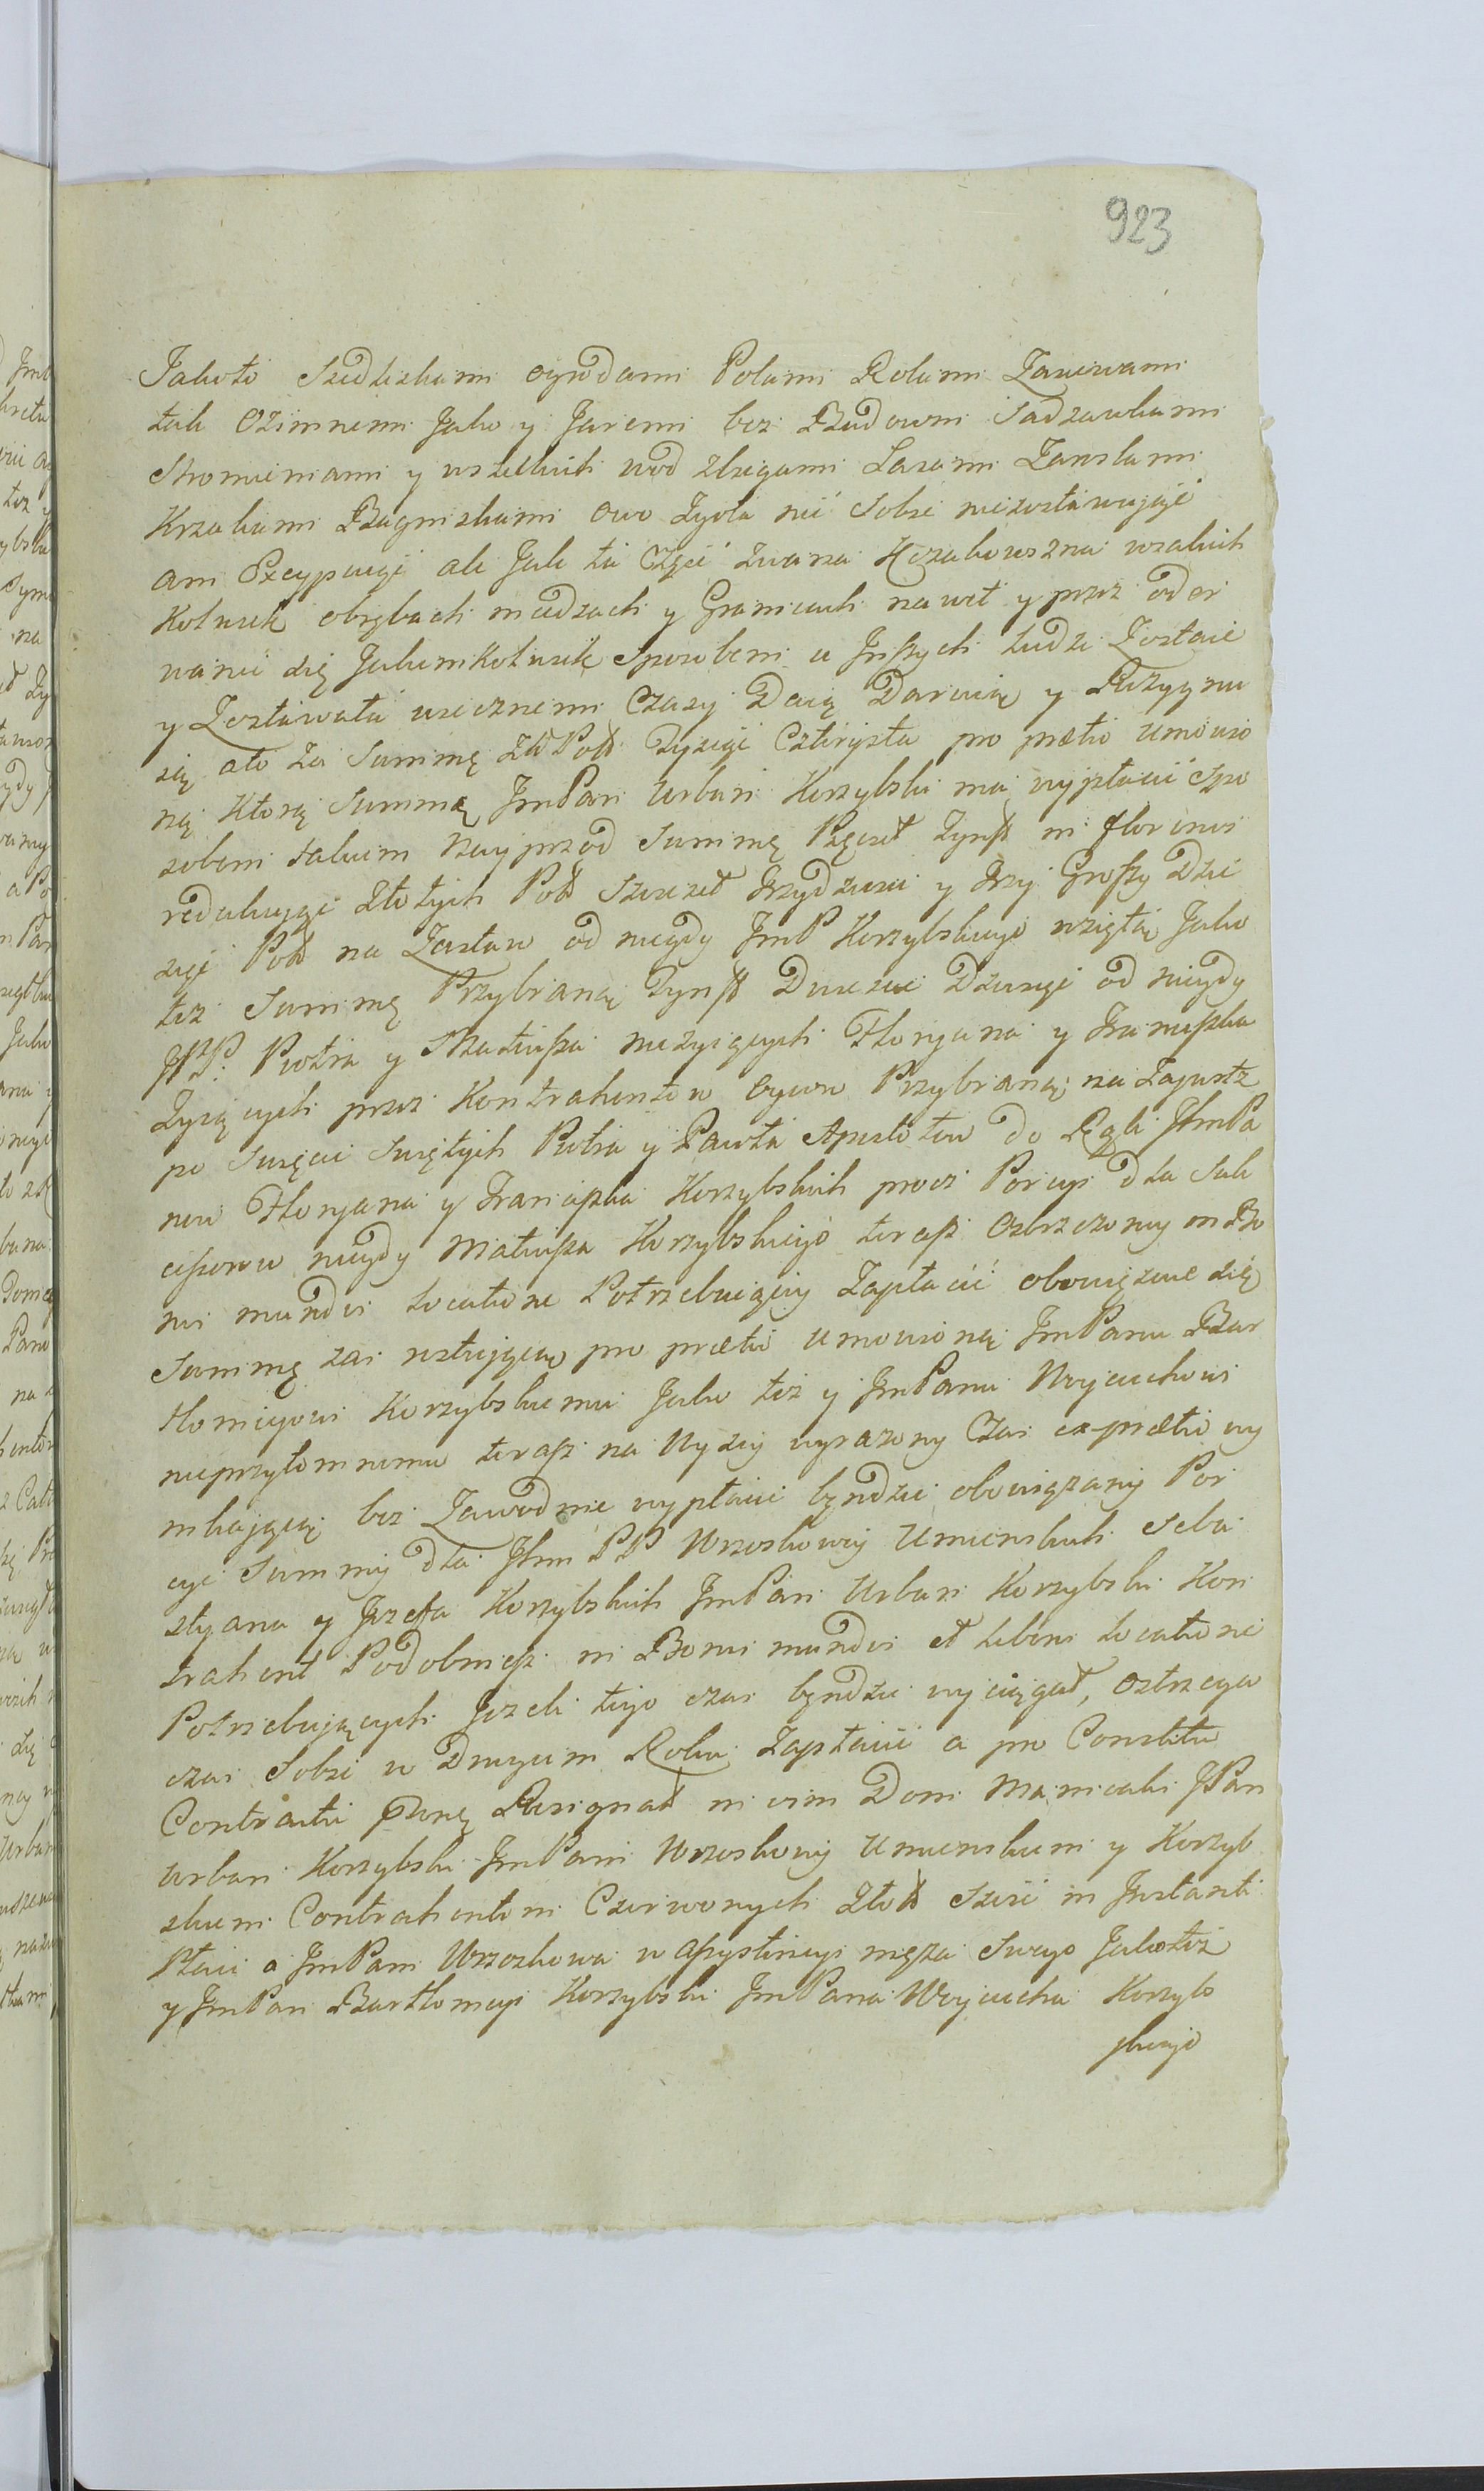 923
Jakoto Siedliskami ogrodami Polami Rolami Zasiewami
tak Ozimnemi Jako y Jaremi bez Budowni Sadzawkami
Stromieniami y wszelkich wod zbiegami Lasami Zarostami
Krzakami Bagniskami owo Zgoła nic Sobie niezostawując
ani Excypuiąc ale Jak ta Częsć zwana Kozakowszna wzakich
Kolwiek obrębach miedzach y Granicach nawet y przez oder
wanie się Jakimkolwiek Sposobem u Jnszych ludzi Zostaie
y Zostawała wiecznemi Czasy Daią Daruią y Rezygnu
ią ato za Summę Złł Poll Tysiąc Czterysta pro prætio umowio
ną Ktorą Summę JmPan Urban Korzybski ma wypłacić Spo
sobem takim Nayprzod Summę Pięcset Tynff in florenos
redukuiąc Złotych Poll Szescset Trzydziesci y Trzy Groszy Dzie
sięć Poll na Zastaw od niegdy JmP Korzybskiego wziętą Jako
tez Summę Przybraną Tynff Dwiescie Dziesięć od niegdy
JPP. Piotra y Mateusza niezyiących Floryana y Franciszka
Zyiących przez Kontrahentow Oycow Przybraną na Zapustę
po Swięcie Swiętych Piotra y Pawła Apostołow do Rąk JhmPa
now Floryana y Franciszka Korzybskich procz Porcyi dla Suk
cessorow niegdy Mateusza Korzybskiego teraz Ostrzezony in Bo
nis mundis locatione Potrzebuiący Zapłacić obowięzuie się
Summę zas restuiącą pro prætio umowioną JmPanu Bar
tłomieyowi Korzybskiemu Jako tez y JmPanu Woyciechowi
nieprzytomnemu teraz na Wyzey wyrazony Czas ex prætio wy
nikaiącą bez Zawodnie wypłacić będzie obowiązany Por
cye Summy dla Jhm PP Wrzoskowey Umienskich Seba
styana y Jozefa Korzybskich JmPan Urban Korzybski Kon
trahent Podobniesz in Bonis mundis et liberis locatione
Potrzebuiących Jezeli tego czas będzie wyciągał, ostrzega
czas Sobie w Drugim Roku Zapłacić a pro Constitu
Contractu Resignat in vim Doni Manicalis JPan
Urban Korzybski JmPani Wrzoskowy Umienskim y Korzyb
skiem Contrahentom Czerwonych Złoll Szesć in Jnstanti
Płaci a JmPani Wrzoskowa w assystencyi męza Swego Jakotez
y JmPan Bartłomiey Korzybski JmPana Woyciecha Korzyb
skiego